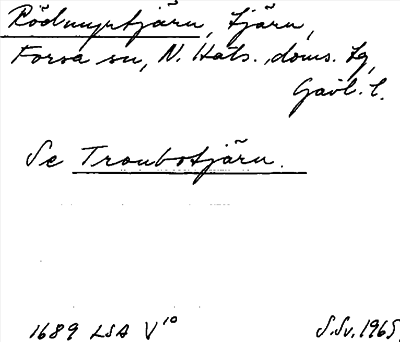 Rödmyrtjärn, tjärn,
Forsa sn, N. Häls. doms. tg,
Gävl. l.
Se Trombotjärn.
1689 LSA V¹⁰
S.Sv. 1965.